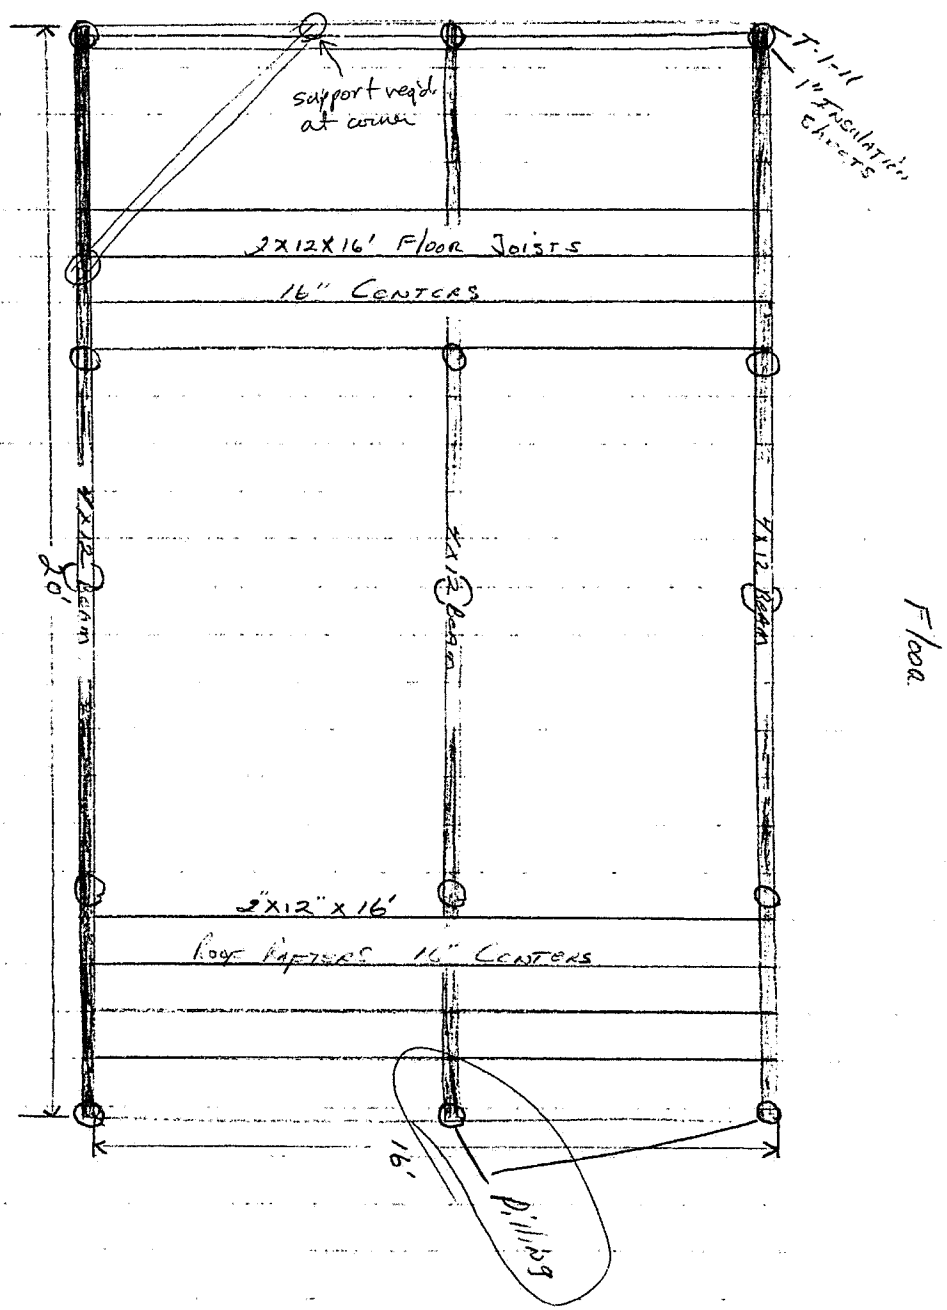 T-1-11
1" INSULATION
SHEETS
support req'd
at corner
2X12X16' FLOOR JOISTS
16" CENTERS
4X12 BEAM
4X12 BEAM
4X12 BEAM
20'
Floor
2"X12"X16'
ROOF RAFTERS 16" CENTERS
16'
pilling